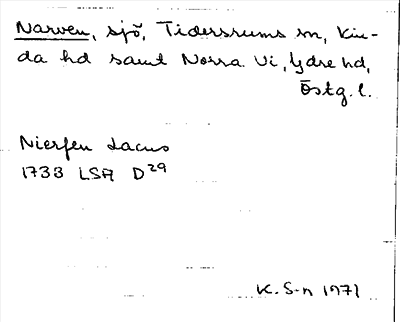 Narven, sjö, Tidersrums sn, Kin-
da hd samt Norra Vi, Ydre hd,
Östg. l.
Nierfen Lacus
1733 LSA D29
K. S-n 1971